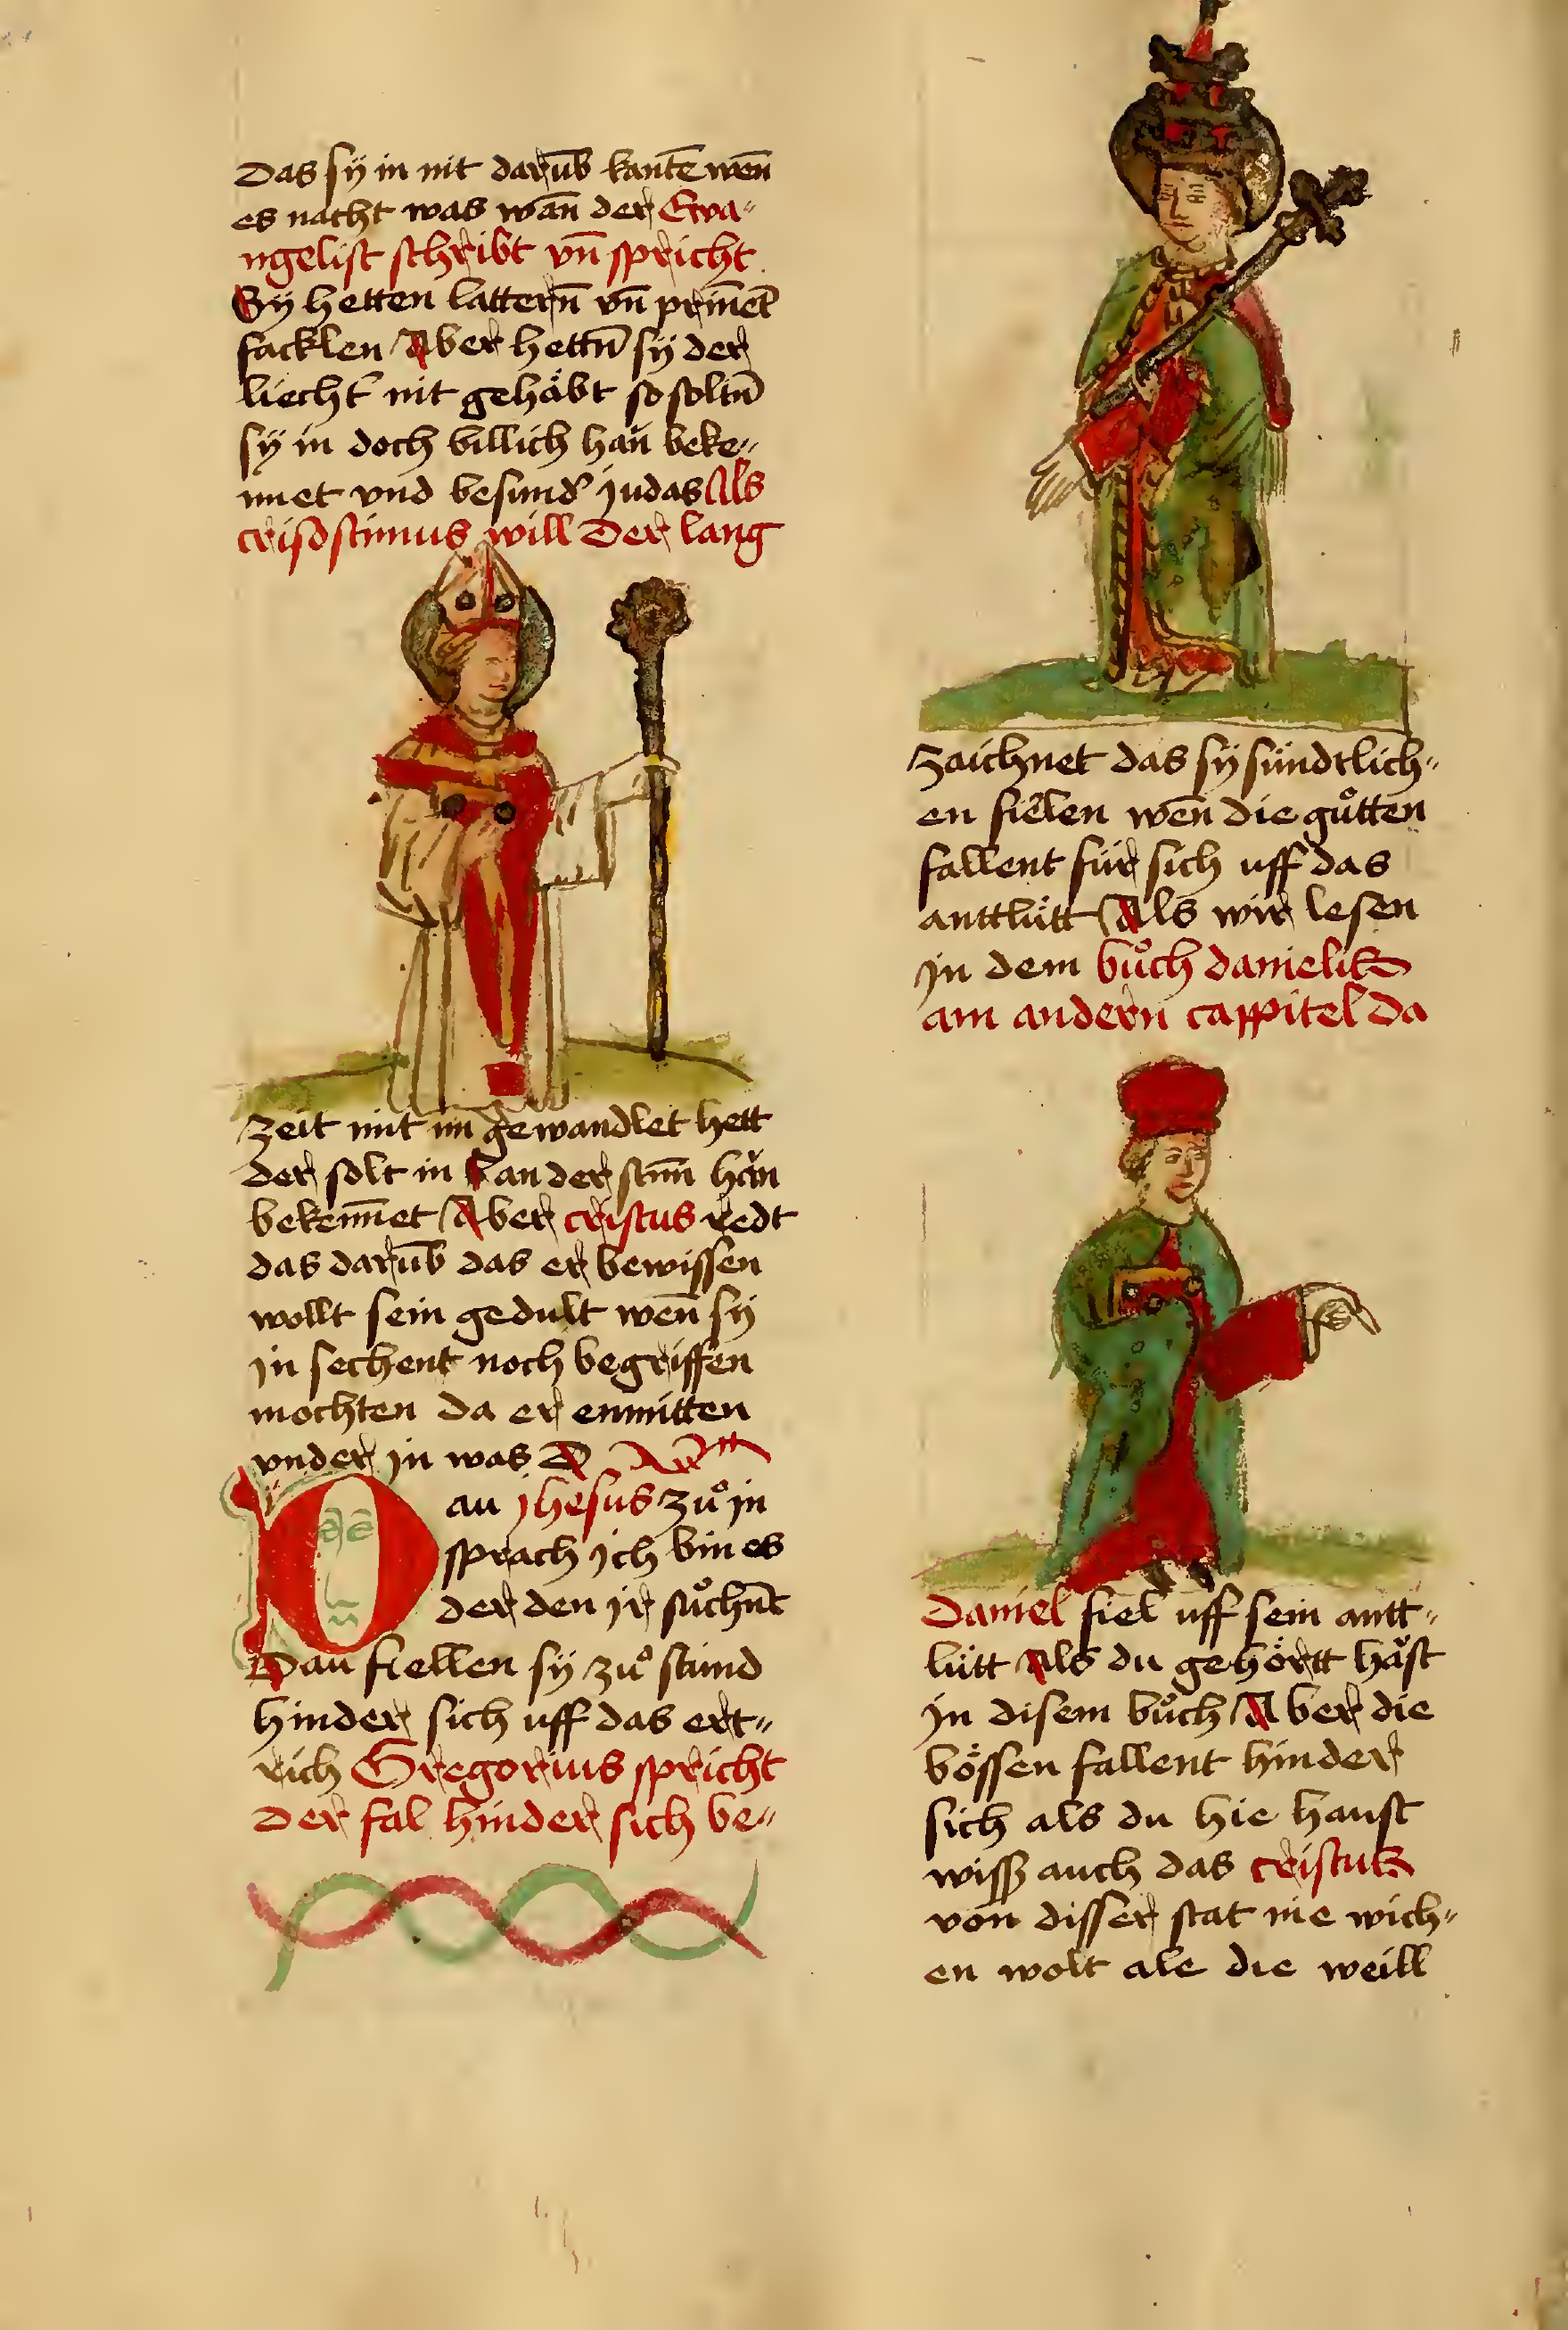 Das sÿ in nit darūb kantē wen̄
es nacht was wan̄ der Ewa⸗
ngelist schribt vn̄ spricht
Sÿ hetten lattern̄ vn̄ prin̄et
facklen Aber hettn̄ sÿ der
liecht nit gehäbt so soltn̄
sÿ in doch billich han beke⸗
nnet vnd besund' judas Als
crisostimus will Der lang
zeit mit im gewandlet hett
der solt in an der stim̄ hän
beken̄et Aber cristus redt
das darūb das er bewissen
wollt sein gedult wen̄ sÿ
in sechent noch begriffen
mochten da er enmitten
vnder jn was
Dau jhesus zuͦ in
sprach ich bin es
der den jr suͦchnt̄
Dau fiellen sÿ zuͦ stund
hinder sich uff das ert⸗
rich Gregorius spricht
Der fal hinder sich be⸗
zaichnet das sÿ sündtlich⸗
en fielen wen̄ die guͦtten
fallent für sich uff das
anttlütt Als wir lesen
jn dem buͦch danielis
am andern cappitel da
Daniel fiel uff sein antt⸗
lütt Als du gehörtt häst
jn disem buͦch Aber die
bössen fallent hinder
sich als du hie haust
wiss auch das cristus
von disser stat nie wich⸗
en wolt ale die weill